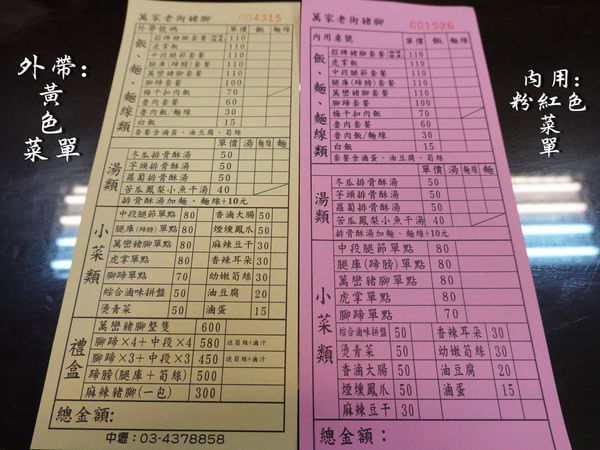 外帶:
黃
色
菜
單
萬家老街豬腳 004315
外帶號碼 單價 飯 麵 麵線
飯、麵、麵線類
招牌豬腳套餐 110
虎掌飯 110
中段腿節套餐 110
腿庫(蹄膀)套餐 110
萬巒豬腳套餐 110
腳蹄套餐 100
梅干扣肉飯 70
魯肉套餐 60
魯肉飯/麵線 30
白飯 15
套餐含滷蛋、油豆腐、筍絲
湯類 單價 湯 麵線 麵
冬瓜排骨酥湯 50
芋頭排骨酥湯 50
蘿蔔排骨酥湯 50
苦瓜鳳梨小魚干湯 40
排骨酥湯加麵、麵線+10元
小菜類
中段腿節單點 80 香滷大腸 50
腿庫(蹄膀)單點 80 煙燻鳳爪 50
萬巒豬腳單點 80 麻辣豆干 30
虎掌單點 80 香辣耳朵 30
腳蹄單點 70 幼嫩筍絲 30
綜合滷味拼盤 50 油豆腐 20
燙青菜 50 滷蛋 15
禮盒
萬巒豬腳整隻 600
腳蹄×4+中段×4 580 送筍絲+滷汁
腳蹄×3+中段×3 450 送筍絲+滷汁
蹄膀(腿庫+筍絲) 500
麻辣豬腳(一包) 300
總金額:
中壢:03-4378858
萬家老街豬腳 001526
內用桌號 單價 飯 麵 麵線
飯、麵、麵線類
招牌豬腳套餐 110
虎掌套餐 110
中段腿節套餐 110
腿庫(蹄膀)套餐 110
萬巒豬腳套餐 110
腳蹄套餐 100
梅干扣肉飯 70
魯肉套餐 60
魯肉飯/麵線 30
白飯 15
套餐含滷蛋、油豆腐、筍絲
湯類 單價 湯 麵線 麵
冬瓜排骨酥湯 50
芋頭排骨酥湯 50
蘿蔔排骨酥湯 50
苦瓜鳳梨小魚干湯 40
排骨酥湯加麵、麵線+10元
小菜類
中段腿節單點 80
腿庫(蹄膀)單點 80
萬巒豬腳單點 80
虎掌單點 80
腳蹄單點 70
綜合滷味拼盤 50 香辣耳朵 30
燙青菜 50 幼嫩筍絲 30
香滷大腸 50 油豆腐 20
煙燻鳳爪 50 滷蛋 15
麻辣豆干 30
總金額:
內用:
粉紅色
菜
單